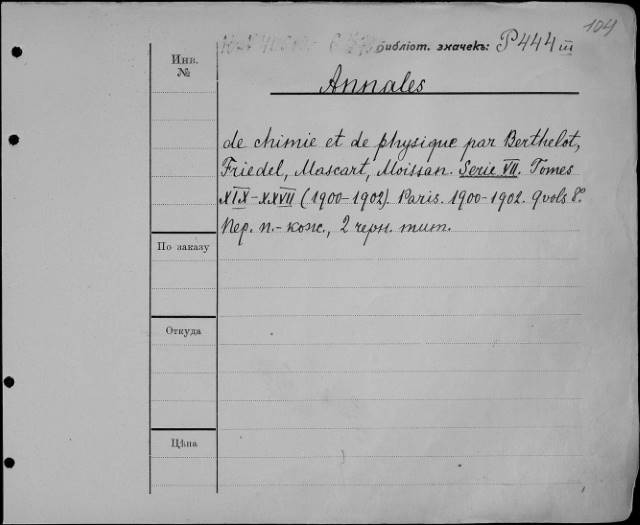 104
Библіот. значекъ: P444 III
Инв.
№
Annales
de chimie et de physique par Berthelot,
Friedel, Mascart, Moissan. Serie VII. Tomes
XIX-XXVII (1900-1902). Paris. 1900-1902. 9 vols 8º.
Пер. п.-кож., 2 черн. тит.
По заказу
Откуда
Цѣна